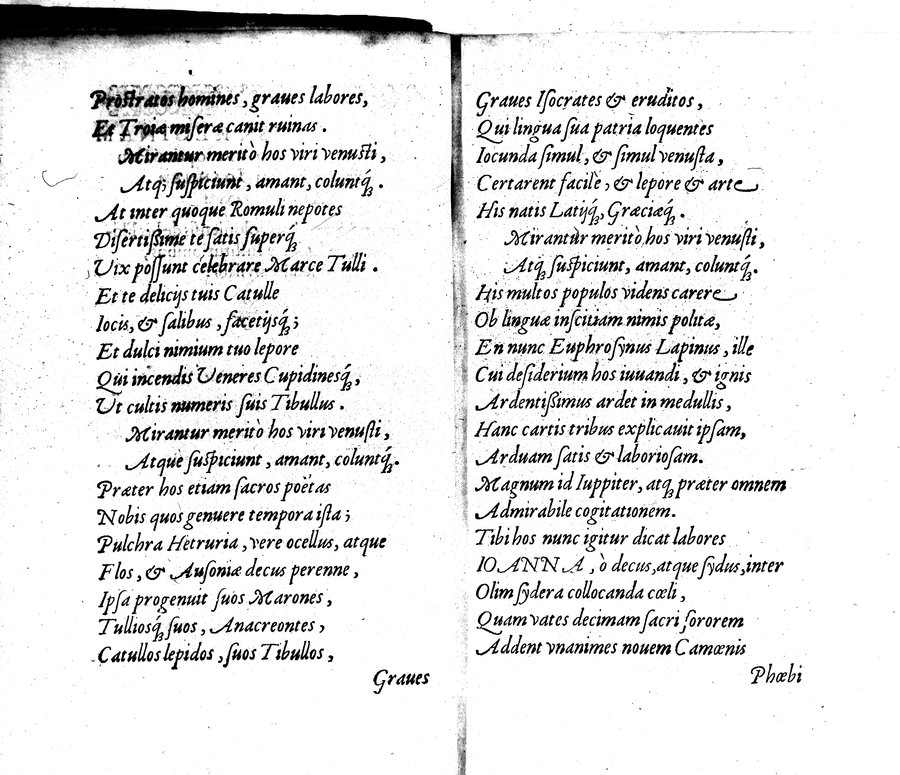 Prostratos homines, graues labores,
Et Troiæ miseræ canit ruinas.
Mirantur meritò hos viri venusti,
Atq; suspiciunt, amant, coluntq́;.
At inter quoque Romuli nepotes
Disertißime te satis superq́;
Vix possunt celebrare Marce Tulli.
Et te delicijs tuis Catulle
Iocis, & salibus, facetijsq́;;
Et dulci nimium tuo lepore
Qui incendis Veneres Cupidinesq́;,
Vt cultis numeris suis Tibullus.
Mirantur meritò hos viri venusti,
Atque suspiciunt, amant, coluntq́;.
Præter hos etiam sacros poëtas
Nobis quos genuere tempora ista;
Pulchra Hetruria, vere ocellus, atque
Flos, & Ausoniæ decus perenne,
Ipsa progenuit suos Marones,
Tulliosq́; suos, Anacreontes,
Catullos lepidos, suos Tibullos,
Graues
Graues Isocrates & eruditos,
Qui lingua sua patria loquentes
Iocunda simul, & simul venusta,
Certarent facilè, & lepore & arte
His natis Latijq́;, Græciæq́;.
Mirantur meritò hos viri venusti,
Atq; suspiciunt, amant, coluntq́;.
His multos populos videns carere
Ob linguæ inscitiam nimis politæ,
En nunc Euphrosynus Lapinus, ille
Cui desiderium hos iuuandi, & ignis
Ardentißimus ardet in medullis,
Hanc cartis tribus explicauit ipsam,
Arduam satis & laboriosam.
Magnum id Iuppiter, atq; præter omnem
Admirabile cogitationem.
Tibi hos nunc igitur dicat labores
IOANNA, ò decus, atque sydus, inter
Olim sydera collocanda cœli,
Quam vates decimam sacri sororem
Addent vnanimes nouem Camœnis
Phœbi